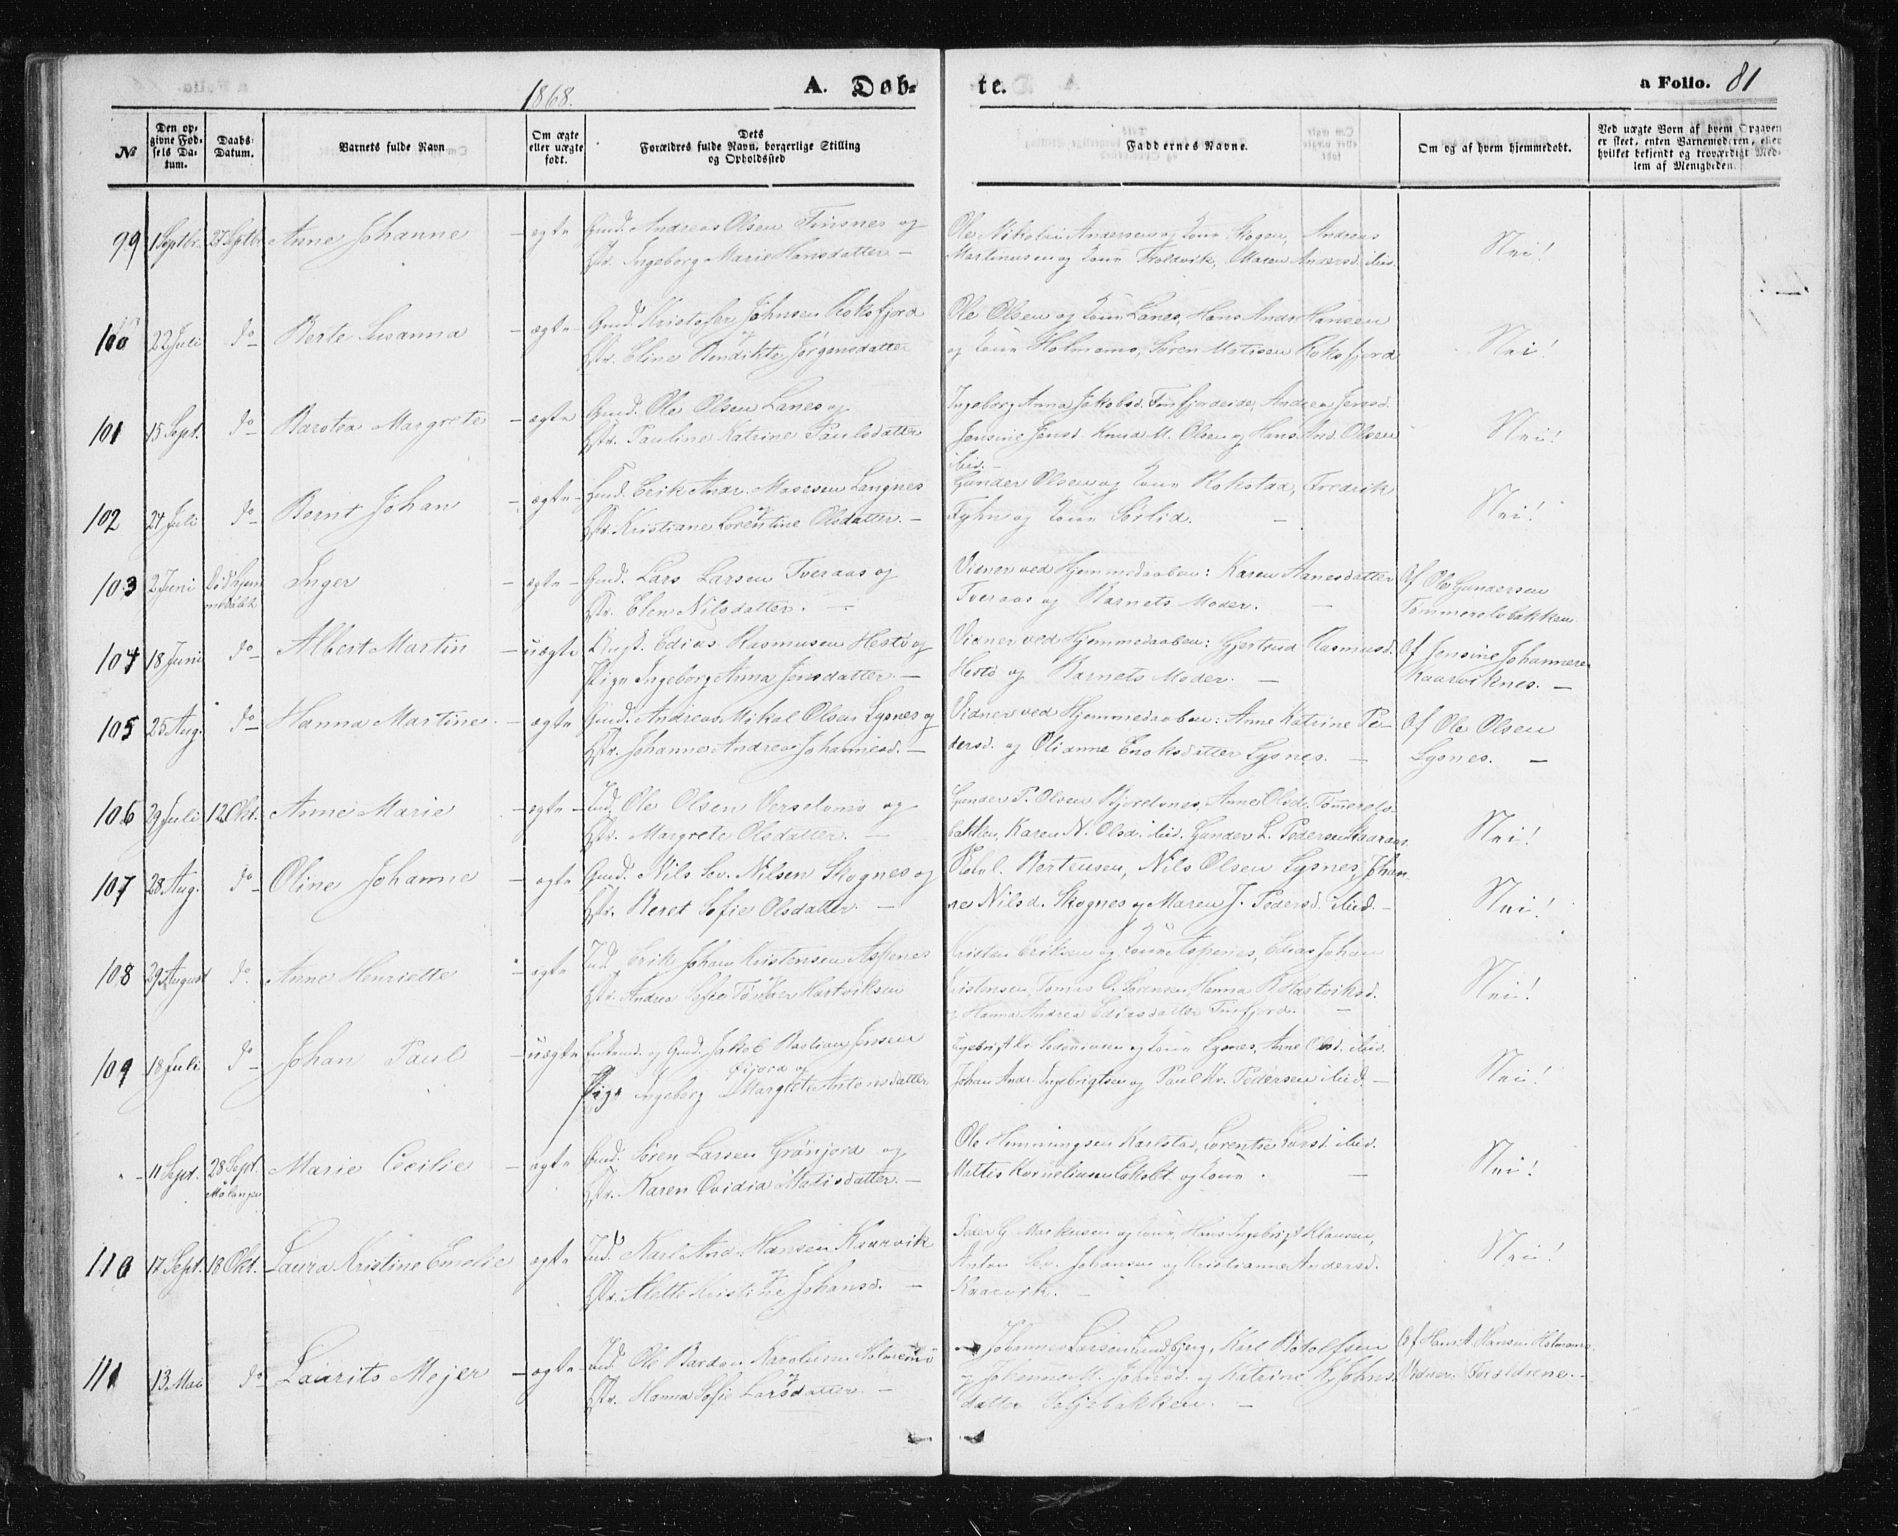 1868.
A. Døb-
te.
a Folio. 81
№
Den op-
givne Fød-
sels Da-
tum.
Daabs
Datum.
Barnets fulde Navn
Om ægte
eller uægte
født.
Dets
Forældres fulde Navn, borgerlige Stilling
og Opholdssted
Faddernes Navne.
Om og af hvem hjemmedøbt.
Ved uægte Børn af hvem Opgaven
er skeet, enten Barnemoderen, eller
hvilket bekjendt og troværdigt Med-
lem af Menigheden.
99 1 Septbr. 27 Septbr. Anne Johanne – ægte Gmd. Andreas Olsen Finsnes og
Ingeborg Marie Hansdatter –
Ole Nikolai Andersen og Kone Skogen, Andreas
Martinusen og Kone Troldvik, Maren Andersd. ibid.
Nei!
100 22 Juli do Berte Susanna – ægte Gmd. Kristofer Johnsen Roksfjord
og
Eline Bendikte Jørgensdatter
Ole Olsen og Kone Lanes, Hans Andr. Hansen
og Kone Holmenes, Søren Matisen Roksfjord
Nei!
101 15 Sept. do Barolea Margrete – ægte Gmd. Ole Olsen Lanes og
Pauline Katrine Paulsdatter
Ingeborg Anna Jakobsd. Finfjordeide, Andrea Jensd.
Jensine Jensd. Knud M. Olsen og Hans And. Olsen
ibid. –
Nei!
102 24 Juli do Bernt Johan – ægte Erik Andr. Mosesen Lengnes
og
Kristiane Lorentine Olsdatter. –
Gunder Olsen og Kone Rokstad, Fredrik
Fyhn og Kone Sørlid. –
Nei!
103 2 Juni Inger – ægte – Gmd. Lars Larsen Tveraas og
Elen Nilsdatter. –
Vidner ved Hjemmedaaben: Karen Hansdatter
Tveraas og Barnets Moder. –
Af Ole Gundersen
Tømmerelvbakken
104 18 Juni do Albert Martin – uægte Edias Rasmusen Hestø og
Pige Ingeborg Anna Jensdatter –
Vidner ved Hjemmedaaben: Gjertrud Rasmusd.
Hestø og Barnets Moder. –
Af Jensine Johannesen
Kaarviknes. –
105 25 Aug. do Hanna Martine. – ægte Gmd. Andreas Mikal Olsen Lysnes og
Johanne Andrea Johannesd. –
Vidner ved Hjemmedaaben: Anne Katrine Pe-
dersd. og Olianne Enoksdatter Lysnes. –
Af Ole Olsen
Lysnes. –
106 29 Juli 12 Okt. Anne Marie – ægte – Ind. Ole Olsen og
Margrete Olsdatter. –
Gunder P. Olsen Bjorelvnes, Anne Olsd. Tømmerelv-
bakken, Karen N. Olsd. ibid. Gunder L. Pedersen
Nei!
107 28 Aug. do Oline Johanne – ægte Gmd. Nils Sev. Nilsen Skognes og
Beret Sofie Olsdatter. –
Bertensen, Nils Olsen Lysnes, Johan-
ne Nilsd. Skognes og Maren J. Pedersd. ibid. –
Nei!
108 29 August do Anne Henriette – ægte Ind. Erik Johan Kristensen Aspenes
og
Andrea Sofie Hartviksen
Kristen Eriksen og Kone Aspenes, Elias Johan
Kristensen, Tomas O. Sørensen, Hanna B. Hartviksd.
og Hanna Andrea Ediasdatter Finfjord. –
Nei!
109 18 Juli do Johan Paul – uægte Enkemd. og Gmd. Jakob Bastian Jensen
Gijord og
Pige Ingeborg Margrete Antonsdatter
Ingebrigt Kr. og Kone Lysnes, Anne Olsd. ibid.
Johan Andr. Ingebrigtsen og Paul Kr. Pedersen ibid. –
Nei!
" 11 Sept. 28 Sept. Marie Cecilie – ægte Gmd. Søren Larsen Grønjord og
Malangen
Karen Ovidia Matisdatter. –
Ole Henningsen Karlstad, Lorentse Larsd. ibid.
Mattis Kornelius og Kone. –
Nei!
110 17 Sept. 18 Okt. Laura Kristine Emelie ægte Ind. Karl And. Hansen Kaarvik
og
Mette Kristine Johansd. –
Peder G. Markusen og Kone, Hans Ingebrigt Klausen,
Anton Sev. Johansen og Kristianna Andersd.
Kaarvik. –
Nei!
111 13 Mai do Laurits Mejer – ægte Ind. Ole Bardon Karolius Holmenes
og
Hanna Sofie Larsdatter. –
Johannes Larsen Lundbjerg, Karl Botolfsen
og Johanna M. Johnsd. og Katrine K. Johns-
datter Seljebakken. –
Af Hans A. Hansen Holmenes.
Vidner: Forældrene. –